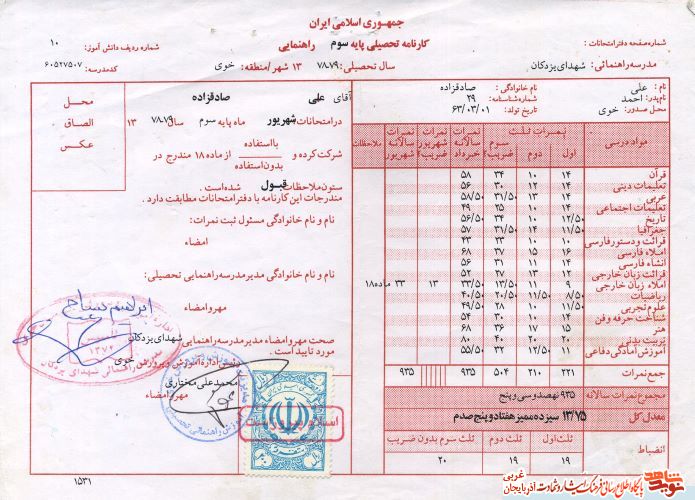 جمهوری اسلامی ایران
کارنامه تحصیلی پایه سوم راهنمایی
شماره صفحه دفتر امتحانات :
شماره ردیف دانش آموز: ۱۰
مدرسه راهنمائی : شهدای یزدکان
سال تحصیلی : ۷۸-۷۹ ۱۳ شهر/منطقه : خوی
کد مدرسه : ۶۰۵۲۷۵۰۷
نام : علی
نام خانوادگی : صادقزاده
نام پدر : احمد
شماره شناسنامه : ۲۹
محل صدور : خوی
تاریخ تولد : ۶۳/۰۳/۰۱
مواد درسی
نمرات ثلث
اول دوم سوم ضریب ۲
نمرات سالانه خرداد
نمرات شهریور ضریب ۲
نمرات سالانه شهریور
ملاحظات
قرآن ۱۴ ۱۰ ۳۴ ۵۸
تعلیمات دینی ۱۴ ۱۲ ۳۰ ۵۶
عربی ۱۴ ۱۳ ۳۱/۵۰ ۵۸/۵۰
تعلیمات اجتماعی ۱۴ ۱۰ ۲۵ ۴۹
تاریخ ۱۲/۵۰ ۱۰ ۳۴ ۵۶/۵۰
جغرافیا ۱۱/۵۰ ۱۴ ۳۱/۵۰ ۵۷
قرائت و دستور فارسی ۱۰ ۱۰ ۲۳ ۴۳
املاء فارسی ۱۶ ۱۵ ۳۷ ۶۸
انشاء فارسی ۱۴ ۱۱ ۳۱ ۵۶
قرائت زبان خارجی ۱۲ ۱۳ ۲۷ ۵۲
املاء زبان خارجی ۹ ۱۱ ۱۳/۵۰ ۳۳/۵۰ ۱۳ ۳۳ ماده۱۸
ریاضیات ۸/۵۰ ۱۱/۵۰ ۲۰/۵۰ ۴۰/۵۰
علوم تجربی ۱۱/۵۰ ۱۰ ۲۸ ۴۹/۵۰
شناخت حرفه و فن ۱۴ ۱۰ ۳۰ ۵۴
هنر ۱۵ ۱۷ ۳۶ ۶۸
تربیت بدنی ۲۰ ۲۰ ۴۰ ۸۰
آموزش آمادگی دفاعی ۱۱ ۱۲/۵۰ ۳۲ ۵۵/۵۰
جمع نمرات ۲۲۱ ۲۱۰ ۵۰۴ ۹۳۵ ۹۳۵
مجموع نمرات سالانه ۹۳۵ نهصدوسی وپنج
معدل کل ۱۳/۷۵ سیزده ممیز هفتادوپنج صدم
انضباط
ثلث اول ثلث دوم ثلث سوم بدون ضریب
۱۹ ۱۹ ۲۰
آقای علی صادقزاده
در امتحانات شهریور ماه پایه سوم سال ۷۸-۷۹ ۱۳
شرکت کرده و با استفاده بدون استفاده از ماده ۱۸ مندرج در
ستون ملاحظات قبول شده است.
مندرجات این کارنامه با دفتر امتحانات مطابقت دارد .
نام و نام خانوادگی مسئول ثبت نمرات:
امضاء
نام و نام خانوادگی مدیر مدرسه راهنمایی تحصیلی :
مهر و امضاء
صحت مهر و امضاء مدیر مدرسه راهنمایی شهدای یزدکان
مورد تایید است .
رئیس اداره آموزش و پرورش خوی
محمدعلی مختاری
مهر و امضاء
محل
الصاق
عکس
۱۵۳۱
شاهد
نوید
پایگاه اطلاع رسانی فرهنگ ایثار و شهادت آذربایجان غربی